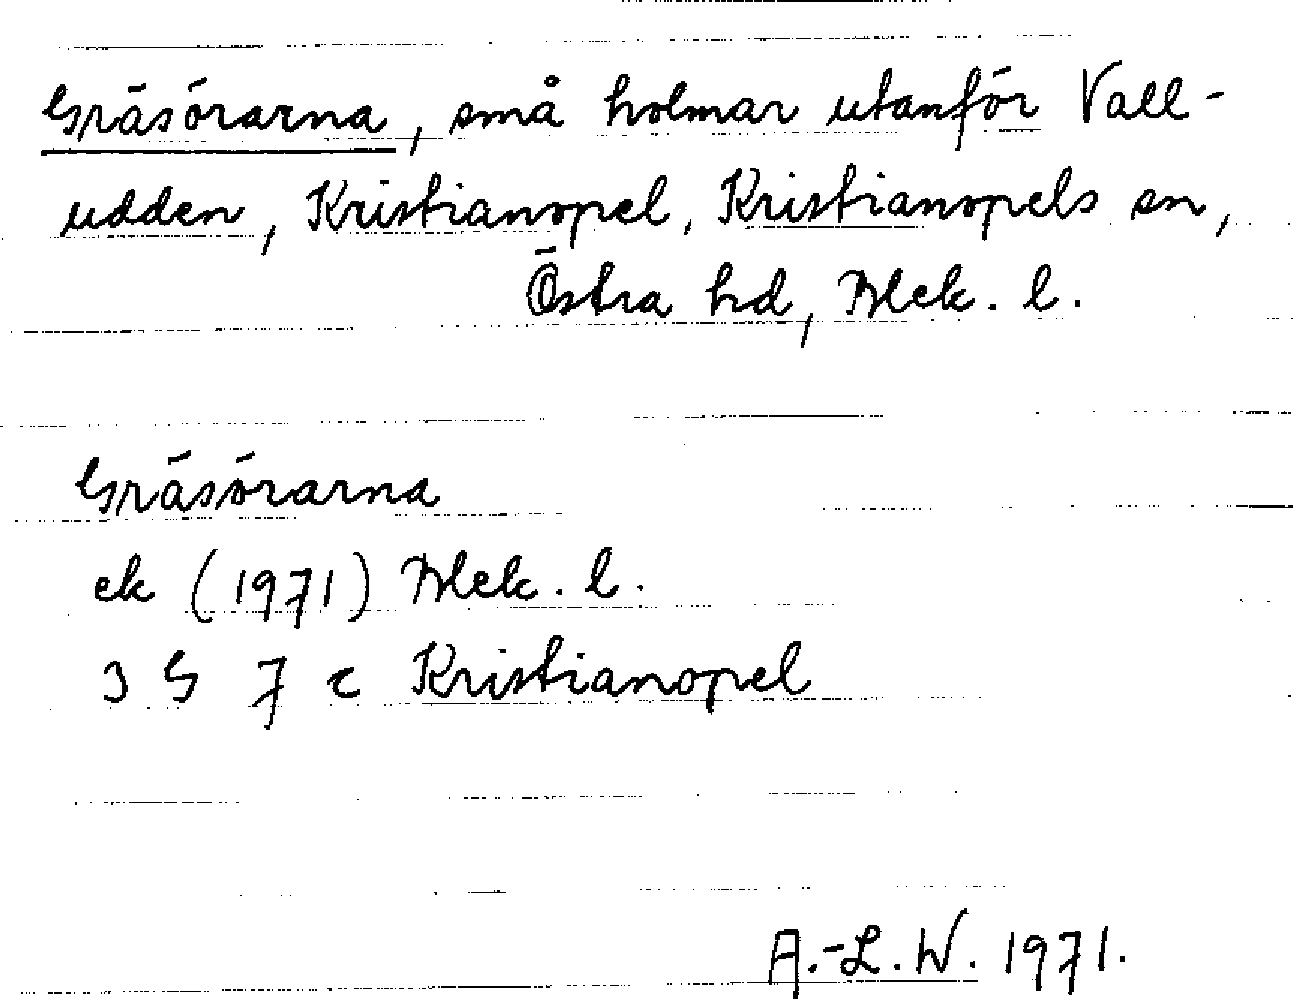 Gräsörarna, små holmar utanför Vall-
udden, Kristianopel, Kristianopels sn,
Östra hd, Blek. l.
Gräsörarna
ek (1971) Blek. l.
3 G 7 c Kristianopel
A.-L.W. 1971.